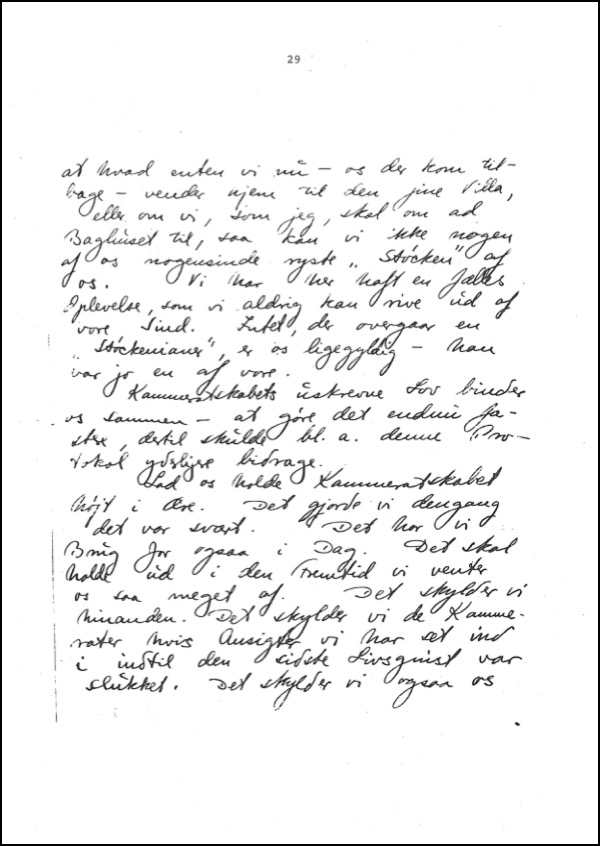 29
at hvad enten vi nu — os der kom til-
bage — vender hjem til den fine Villa,
eller om vi, som jeg, skal om ad
Baghuset til, saa kan vi ikke nogen
af os nogensinde ryste „Stöcken" af
os. Vi har her haft en fælles
Oplevelse, som vi aldrig kan rive ud af
vore Sind. Intet, der overgaar en
„Stöckenianer", er os ligegyldig — han
var jo en af vore.
Kammeratskabets uskrevne Lov binder
os sammen — at göre det endnu fa-
stere, dertil skulde bl. a. denne Pro-
tokol yderligere bidrage.
Lad os holde Kammeratskabet
højt i Ære. Det gjorde vi dengang
det var svært. Det har vi
Brug for ogsaa i Dag. Det skal
holde ud i den Fremtid vi venter
os saa meget af. Det skylder vi
hinanden. Det skylder vi de Kamme-
rater hvis Ansigter vi har set ind
i indtil den sidste Livsgnist var
slukket. Det skylder vi ogsaa os